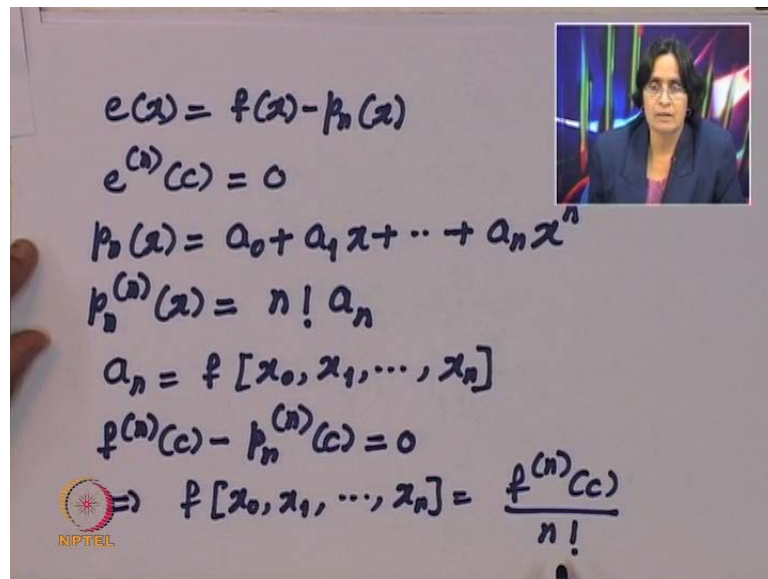 e(x) = f(x) - pₙ(x)
e⁽ⁿ⁾(c) = 0
pₙ(x) = a₀ + a₁x + ·· + aₙxⁿ
pₙ⁽ⁿ⁾(x) = n! aₙ
aₙ = f[x₀, x₁, ···, xₙ]
f⁽ⁿ⁾(c) - pₙ⁽ⁿ⁾(c) = 0
⇒ f[x₀, x₁, ···, xₙ] = f⁽ⁿ⁾(c) / n!
NPTEL